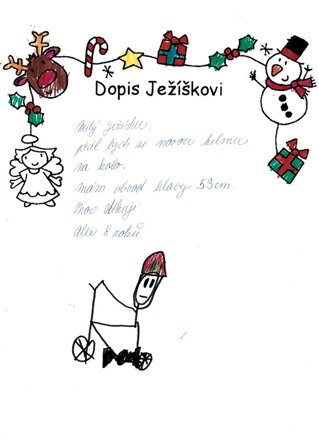 Dopis Ježíškovi
Milý Ježíšku,
přál bych si novou helmu
na kolo.
mám obvod hlavy 53cm.
Moc děkuji.
8 roků